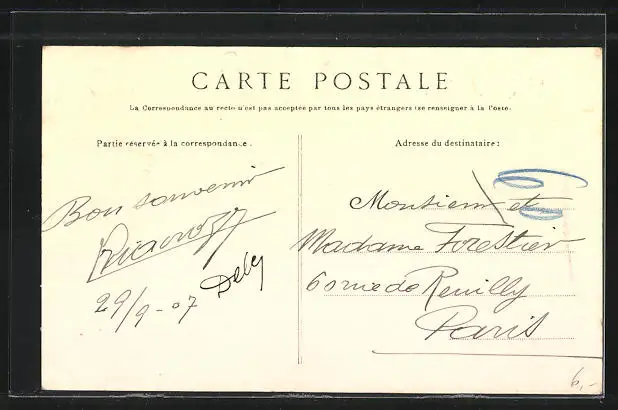 CARTE POSTALE
La Correspondance au recto n'est pas acceptée par tous les pays étrangers (se renseigner à la Poste.
Partie réservée à la correspondance.
Bon souvenir
29/9-07
Adresse du destinataire:
Monsieur et
Madame Forestier
60 rue de Reuilly
Paris
6,-